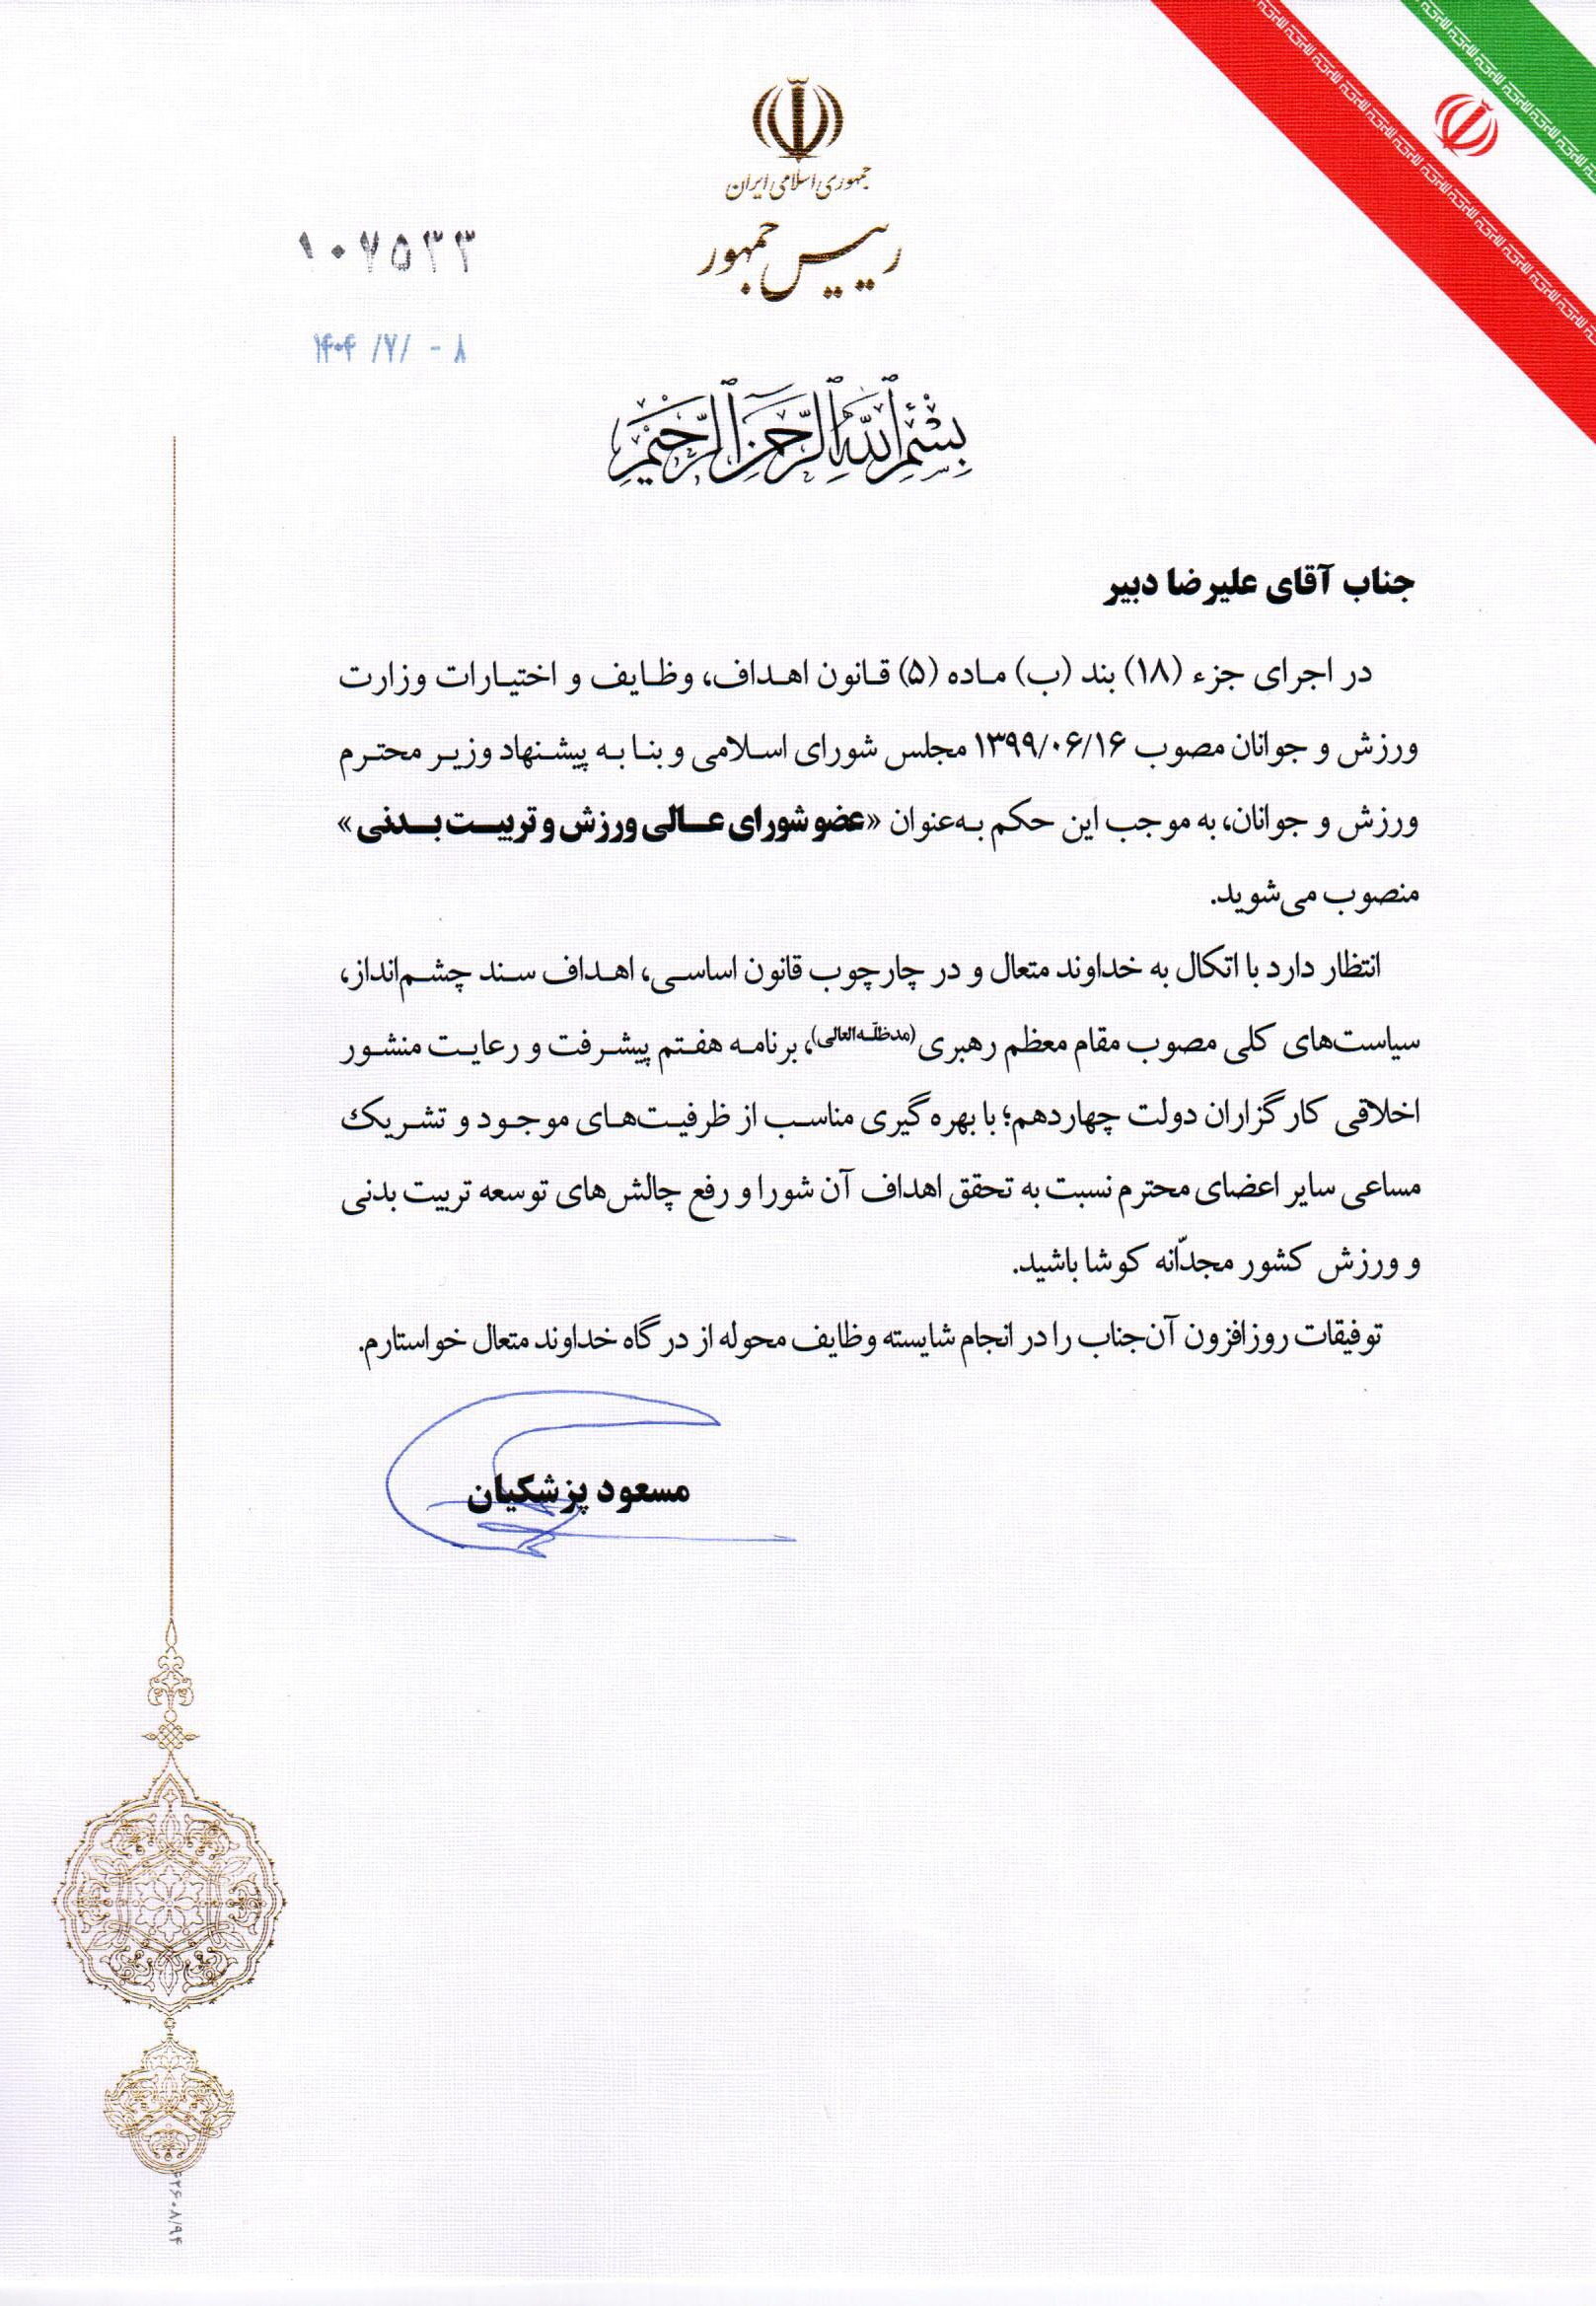 جمهوری اسلامی ایران
رییس جمهور
۱۰۷۵۳۳
۱۴۰۴ /۷/ - ۸
بِسْمِ ٱللَّهِ ٱلرَّحْمَنِ ٱلرَّحِيمِ
جناب آقای علیرضا دبیر
در اجرای جزء (۱۸) بند (ب) ماده (۵) قانون اهداف، وظایف و اختیارات وزارت
ورزش و جوانان مصوب ۱۳۹۹/۰۶/۱۶ مجلس شورای اسلامی و بنا به پیشنهاد وزیر محترم
ورزش و جوانان، به موجب این حکم به‌عنوان «عضو شورای عالی ورزش و تربیت بدنی»
منصوب می‌شوید.
انتظار دارد با اتکال به خداوند متعال و در چارچوب قانون اساسی، اهداف سند چشم‌انداز،
سیاست‌های کلی مصوب مقام معظم رهبری(مدظلّه‌العالی)، برنامه هفتم پیشرفت و رعایت منشور
اخلاقی کارگزاران دولت چهاردهم؛ با بهره‌گیری مناسب از ظرفیت‌های موجود و تشریک
مساعی سایر اعضای محترم نسبت به تحقق اهداف آن شورا و رفع چالش‌های توسعه تربیت بدنی
و ورزش کشور مجدّانه کوشا باشید.
توفیقات روزافزون آن‌جناب را در انجام شایسته وظایف محوله از درگاه خداوند متعال خواستارم.
مسعود پزشکیان